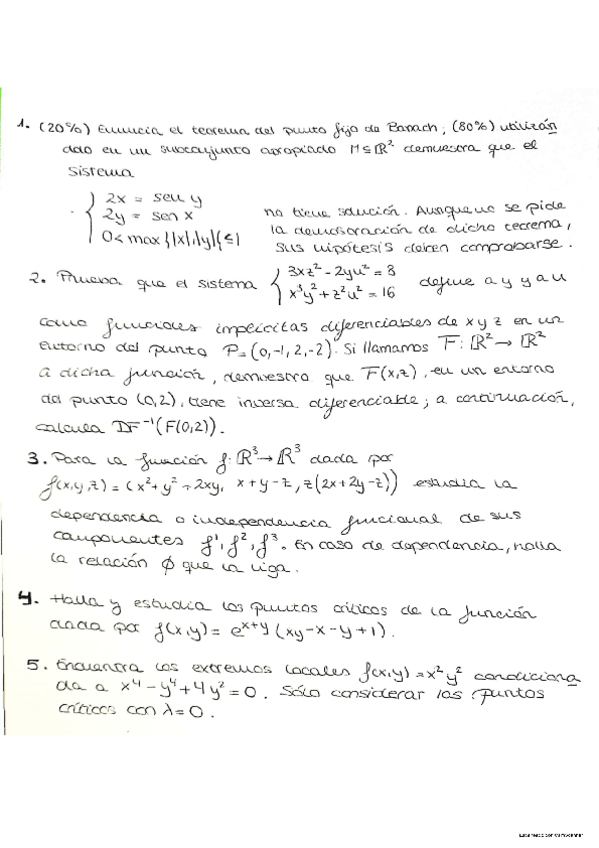 1. (20%) Enuncia el teorema del punto fijo de Banach; (80%) utilizán
dolo en un subconjunto apropiado M⊆ℝ² demuestra que el
sistema
2x = sen y
2y = sen x
0 < max{|x|,|y|} ≤ 1
no tiene solución. Aunque no se pide
la demostración de dicho teorema,
sus hipótesis deben comprobarse.
2. Prueba que el sistema { 3xz² - 2yu² = 8
x³y² + z²u² = 16
define a y y a u
como funciones implícitas diferenciables de x y z en un
entorno del punto P=(0,-1,2,-2). Si llamamos F: ℝ² → ℝ²
a dicha función, demuestra que F(x,z), en un entorno
del punto (0,2), tiene inversa diferenciable; a continuación,
calcula DF⁻¹(F(0,2)).
3. Para la función f: ℝ³ → ℝ³ dada por
f(x,y,z) = (x² + y² + 2xy, x + y - z, z(2x+2y-z)) estudia la
dependencia o independencia funcional de sus
componentes f¹, f², f³. En caso de dependencia, halla
la relación ϕ que la liga.
4. Halla y estudia los puntos críticos de la función
dada por f(x,y) = e^{x+y} (xy - x - y + 1).
5. Encuentra los extremos locales f(x,y) = x² y² condiciona
da a x⁴ - y⁴ + 4y² = 0. Sólo considerar los puntos
críticos con λ = 0.